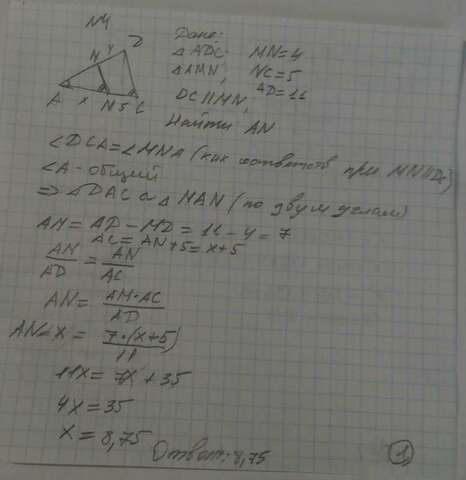 №4
M 4 D
A x N 5 C
Дано:
△ADC MN=4
△AMN, NC=5
DC||MN, AD=11
Найти AN
∠DCA=∠MNA (как соответств при MN||DC)
∠A-общий
⇒ △DAC ∾ △MAN (по двум углам)
AM = AD - MD = 11 - 4 = 7
AC = AN+5 = x+5
AM/AD = AN/AC
AN = AM·AC/AD
AN=x = 7·(x+5)/11
11x = 7x + 35
4x = 35
x = 8,75
Ответ: 8,75
1